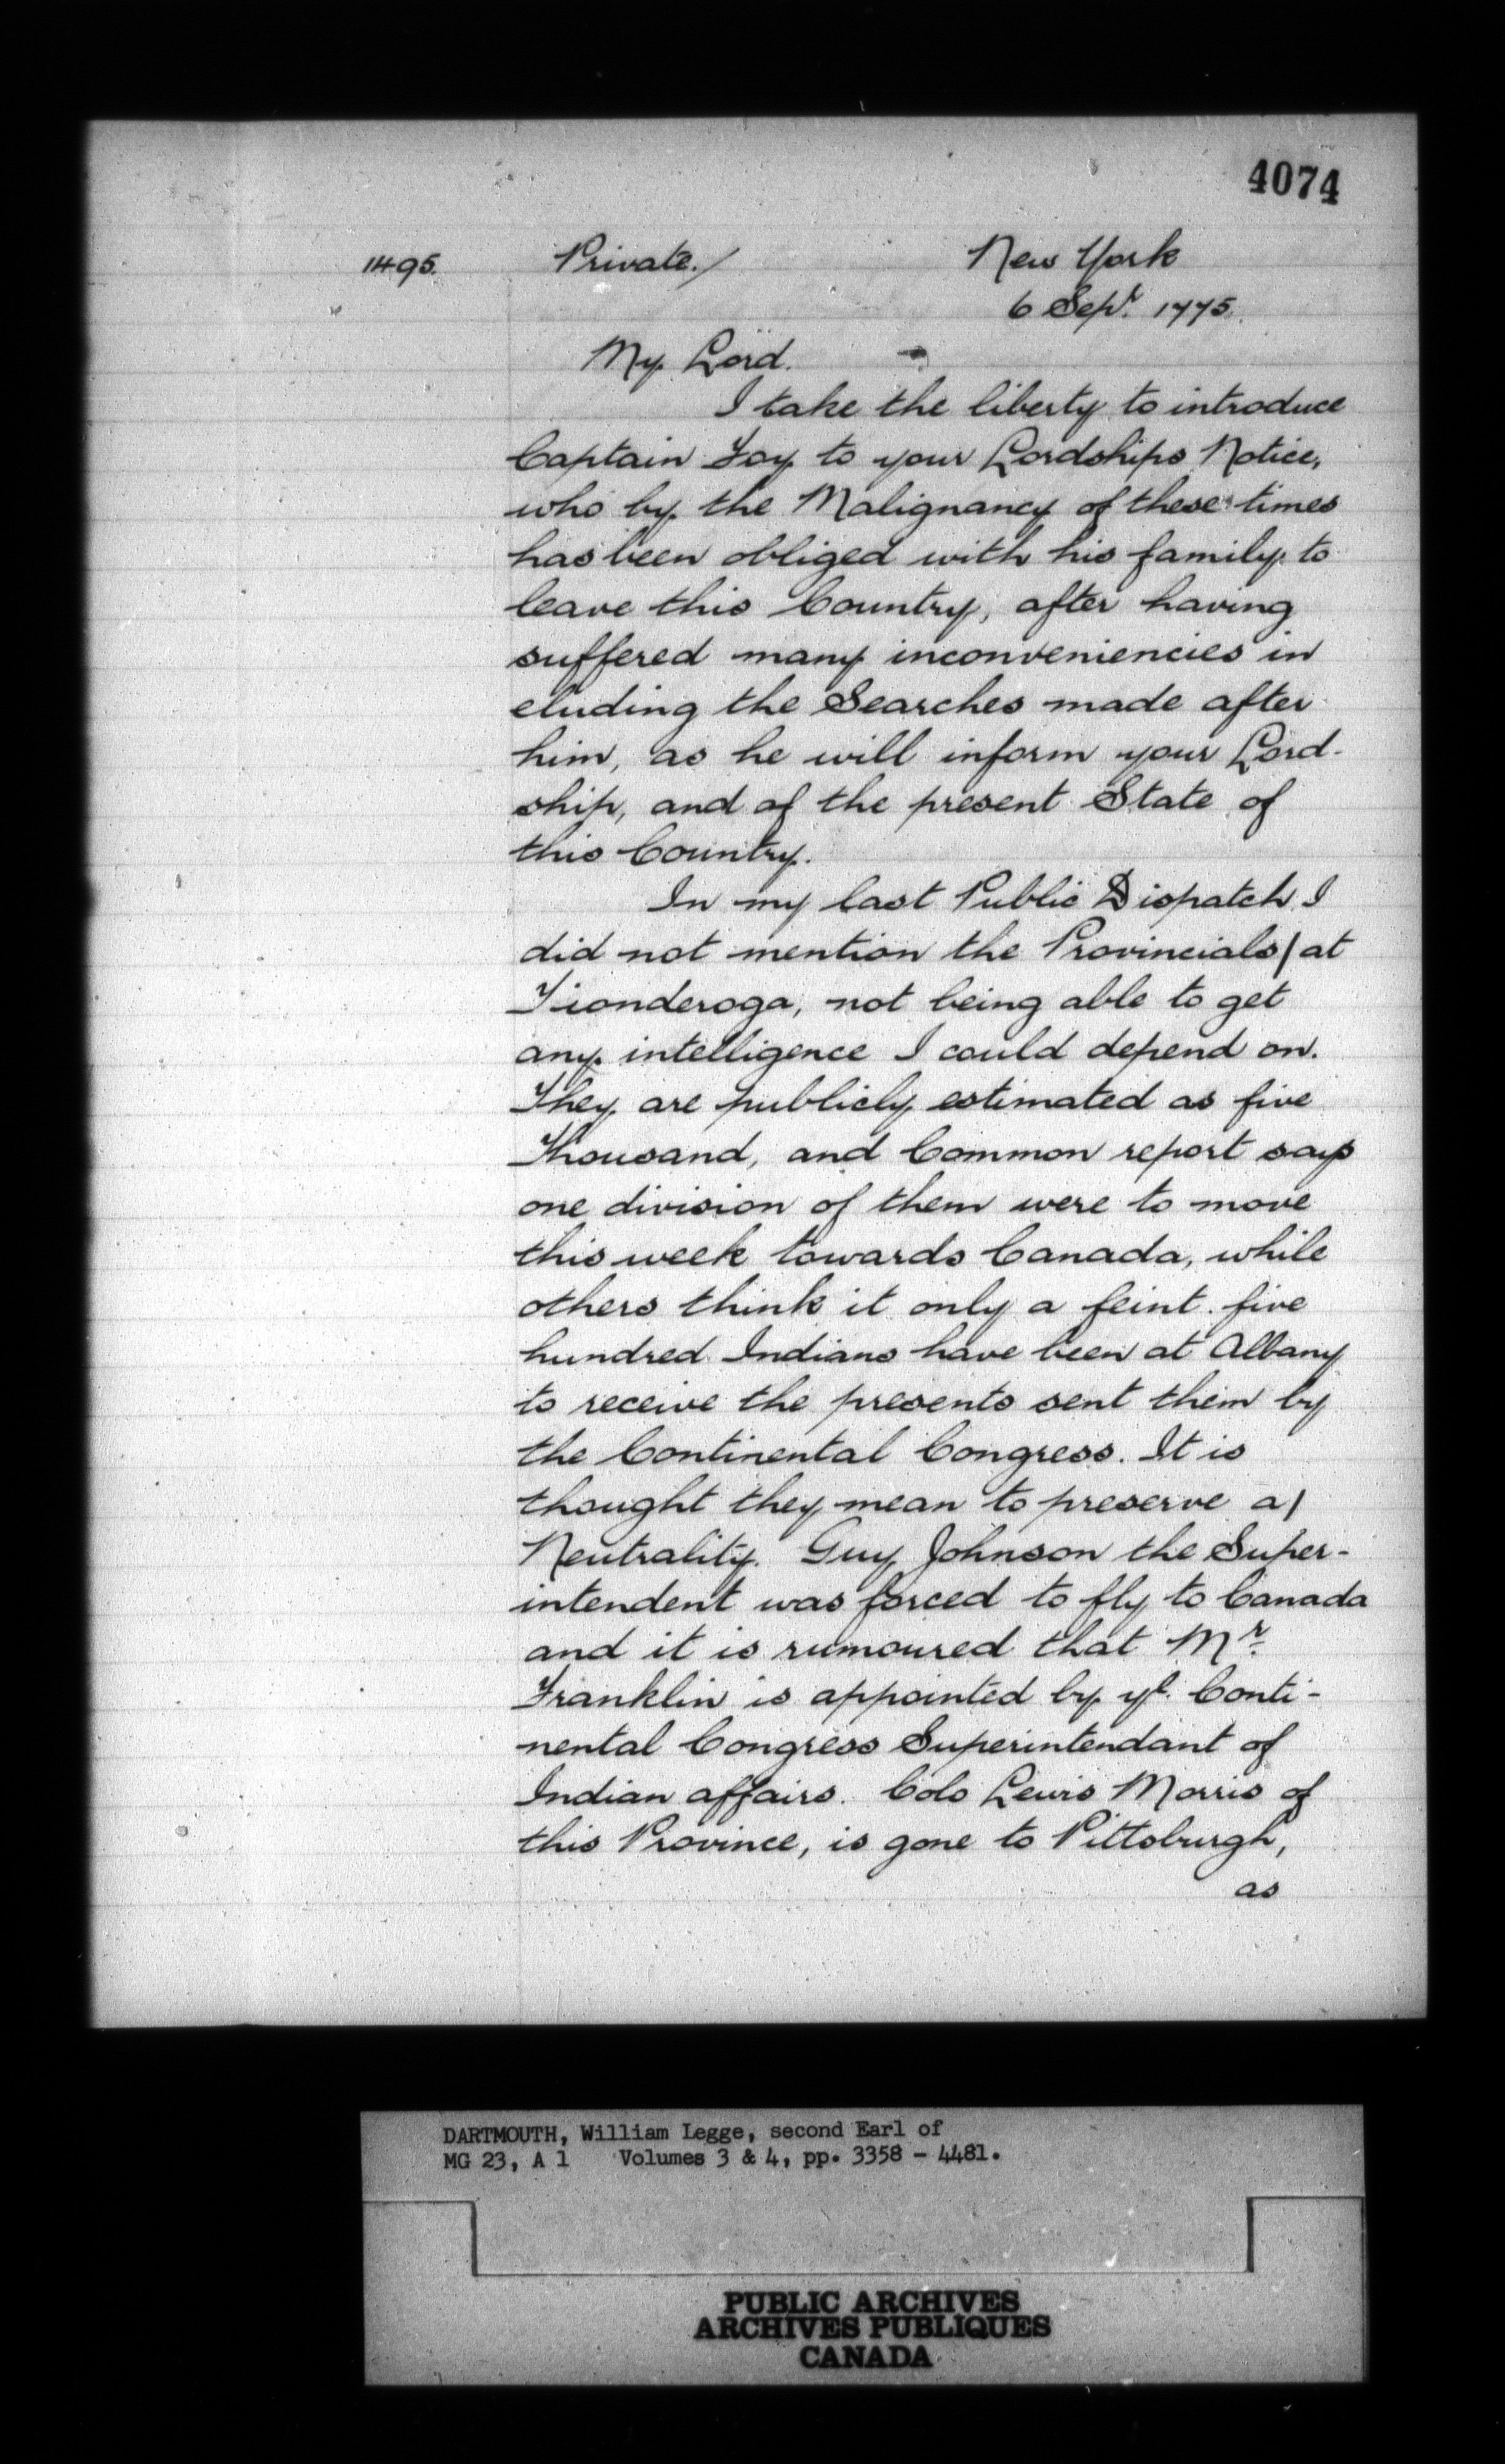 4074
1495.
Private./
New York
6 Sepr. 1775.
My Lord.
I take the liberty to introduce
Captain Foy to your Lordships Notice,
who by the Malignancy of these times
has been obliged with his family to
leave this Country, after having
suffered many inconveniencies in
eluding the Searches made after
him, as he will inform your Lord-
ship, and of the present State of
this Country.
In my last Public Dispatch I
did not mention the Provincials/at
Tionderoga, not being able to get
any intelligence I could depend on.
They are publicly estimated as five
Thousand, and Common report says
one division of them were to move
this week towards Canada, while
others think it only a feint. five
hundred Indians have been at Albany
to receive the presents sent them by
the Continental Congress. It is
thought they mean to preserve a/
Neutrality. Guy Johnson the Super-
intendent was forced to fly to Canada
and it is rumoured that Mr.
Franklin is appointed by ye. Conti-
nental Congress Superintendant of
Indian affairs. Colo Lewis Morris of
this Province, is gone to Pittsburgh,
as
DARTMOUTH, William Legge, second Earl of
MG 23, A 1 Volumes 3 & 4, pp. 3358 - 4481.
PUBLIC ARCHIVES
ARCHIVES PUBLIQUES
CANADA